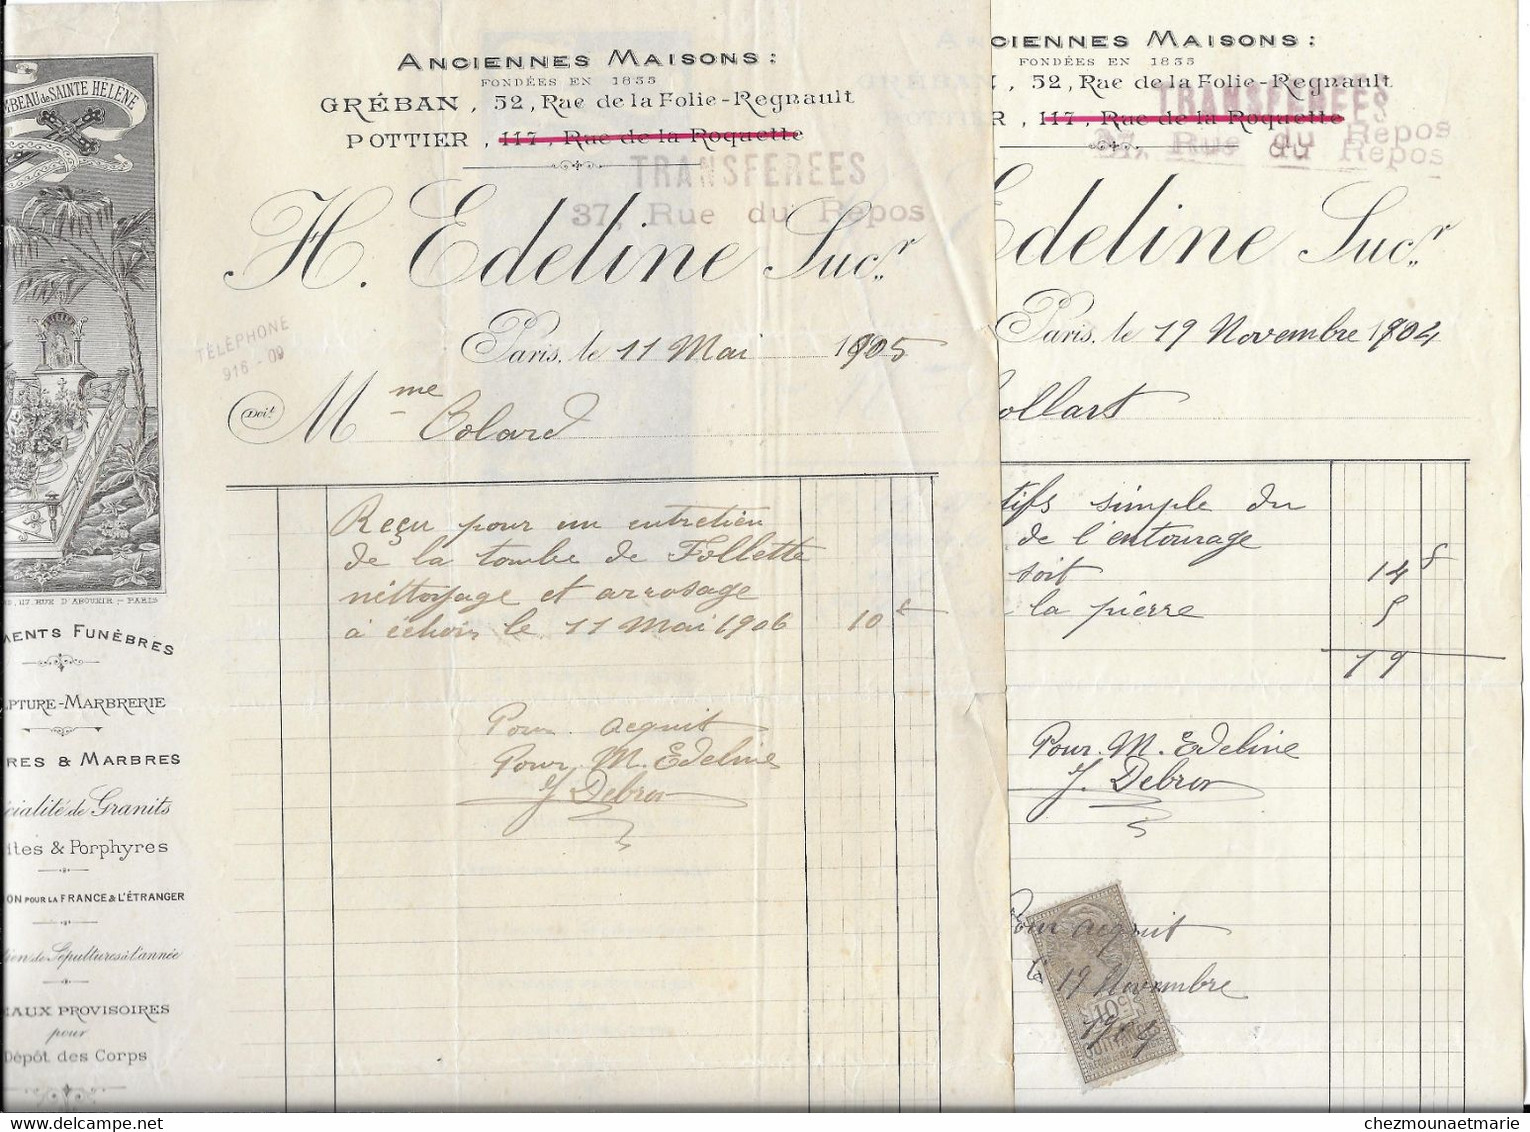 MBEAU de SAINTE HÉLÈNE
117, RUE D'ABOUKIR - PARIS
MENTS FUNÈBRES
LPTURE-MARBRERIE
RES & MARBRES
cialité de Granits
ites & Porphyres
ON POUR LA FRANCE & L'ÉTRANGER
tien de Sépultures à l'année
EAUX PROVISOIRES
pour
Dépôt des Corps
ANCIENNES MAISONS:
FONDÉES EN 1855
GRÉBAN, 52, Rue de la Folie-Regnault
POTTIER, 117, Rue de la Roquette
TRANSFEREES
37, Rue du Repos
H. Edeline Succr
TÉLÉPHONE
916-09
Paris, le 11 Mai 1905
Doit
Mme Colard
Reçu pour un entretien
de la tombe de Follette
nettoyage et arrosage
à échoir le 11 Mai 1906 10 f
Pour acquit
Pour M. Edeline
J. Debror
CIENNES MAISONS:
FONDÉES EN 1855
, 52, Rue de la Folie-Regnault
R, 117, Rue de la Roquette
TRANSFEREES
37, Rue du Repos
du Repos
Edeline Succr
Paris, le 19 Novembre 1904
ollart
tifs simple du
de l'entourage
soit 14 f
la pierre 5
19
Pour M. Edeline
J. Debror
Pour acquit
le 19 Novembre
1904
10c
QUITTANCES
chezmounaetmarie